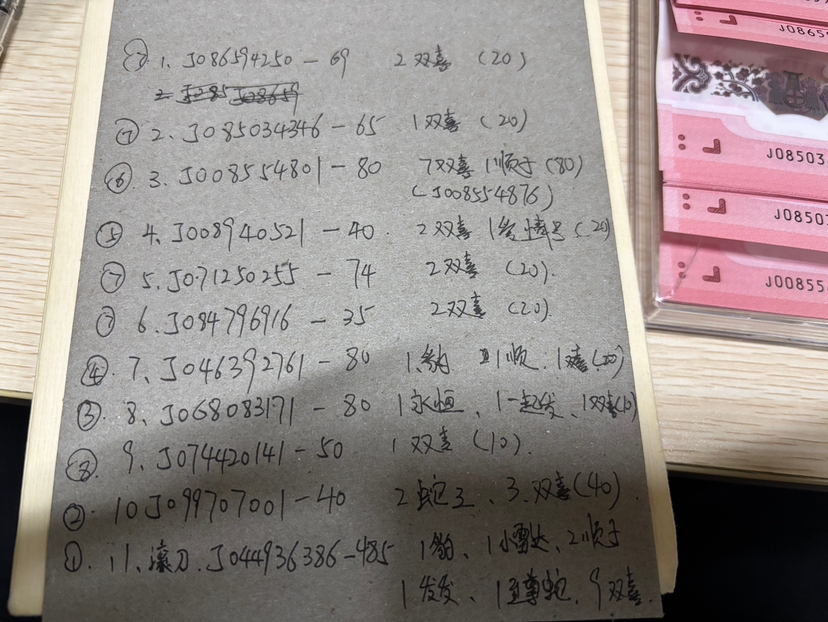 ⑦ 1. J086594250 — 69 2双喜 (20)
⑦ 2、J085034346 — 65 1双喜 (20)
⑥ 3. J008554801 — 80 7双喜 1顺子 (80)
(J008554876)
⑤ 4、J008940521 — 40. 2双喜 1 (20)
⑦ 5. J071250255 — 74 2双喜 (20).
⑦ 6. J084796916 — 35 2双喜 (20).
④ 7、J046392761 — 80 1豹 1顺. 1双喜(20)
③ 8、J068083171 — 80 1永恒、1一起发、1双喜(10)
⑧ 9、J074420141 — 50 1双喜 (10).
② 10 J099707001 — 40 2蛇王、3.双喜(40).
①. 11、滚刀. J044936386 — 485 1豹、1小雷达、2顺子
1发发、1至尊蛇. 9双喜.
J0865
J08503
J08503
J00855